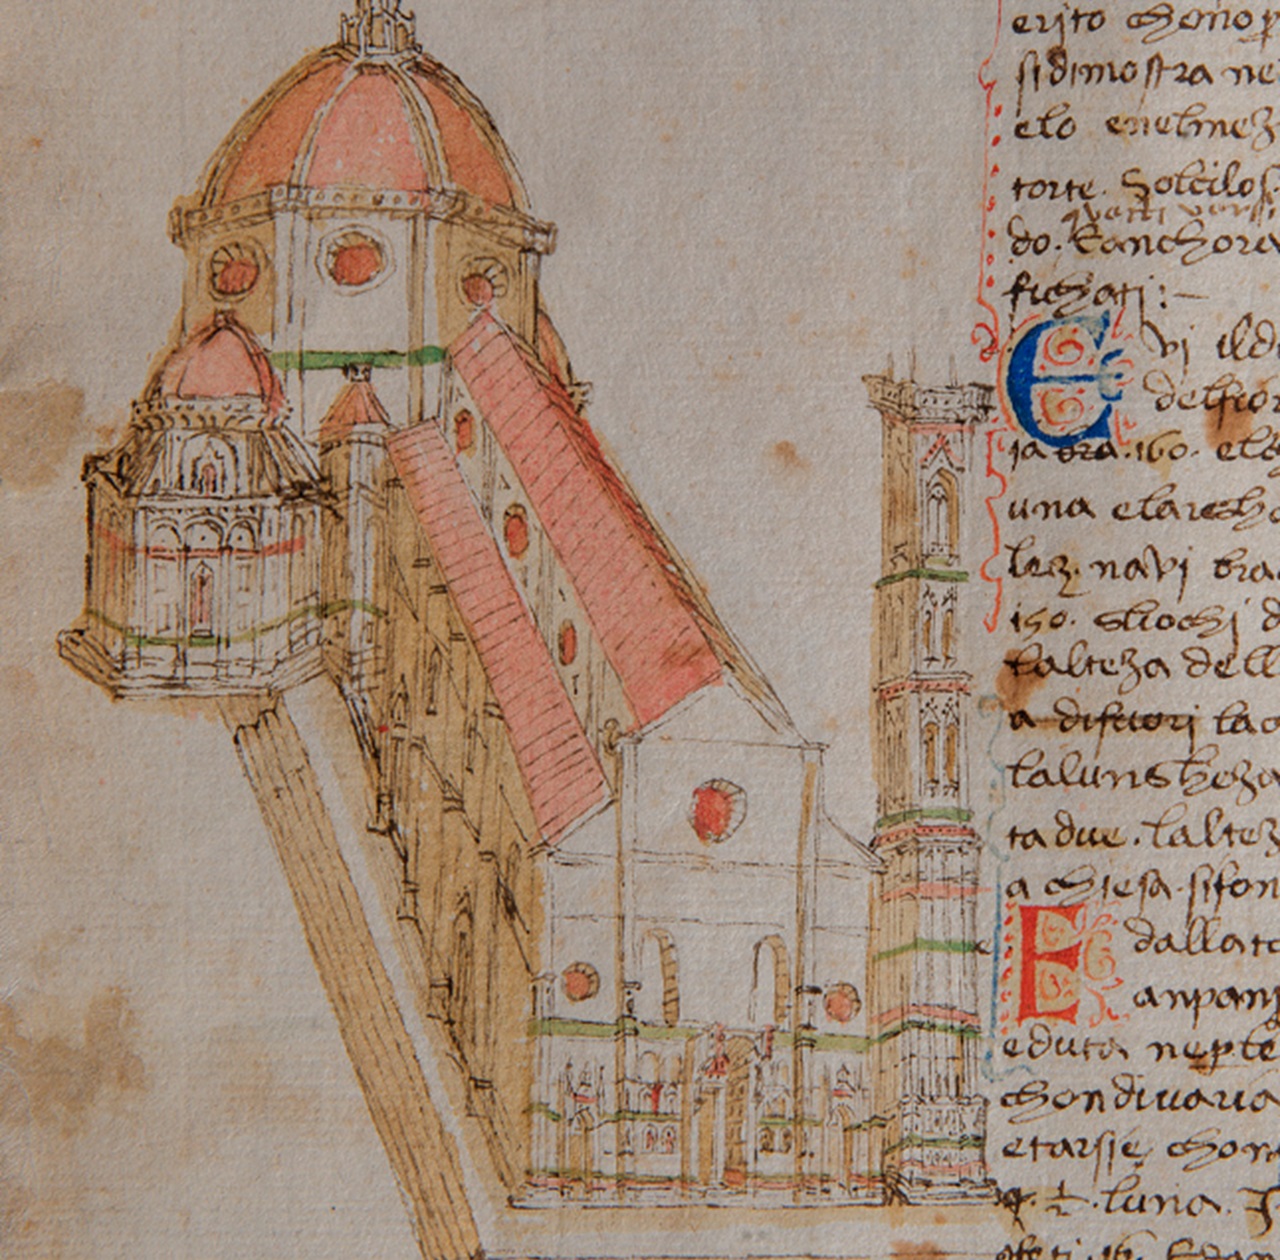 erito chono p
si dimostra ne
elo enelmez
torte. Solcilos
questi versi
do. Eanchora
fichati:–
Evi ildo
delfior
ia bra.160. elo
una elargho
lez. navi bra
150. gliochi d
lalteza dell
a difuori lao
lalungheza
ta due. laltez
a chiesa. sifon
E dallato
anpani
eduta nepte
chondivaria
etarsie chon
luna.